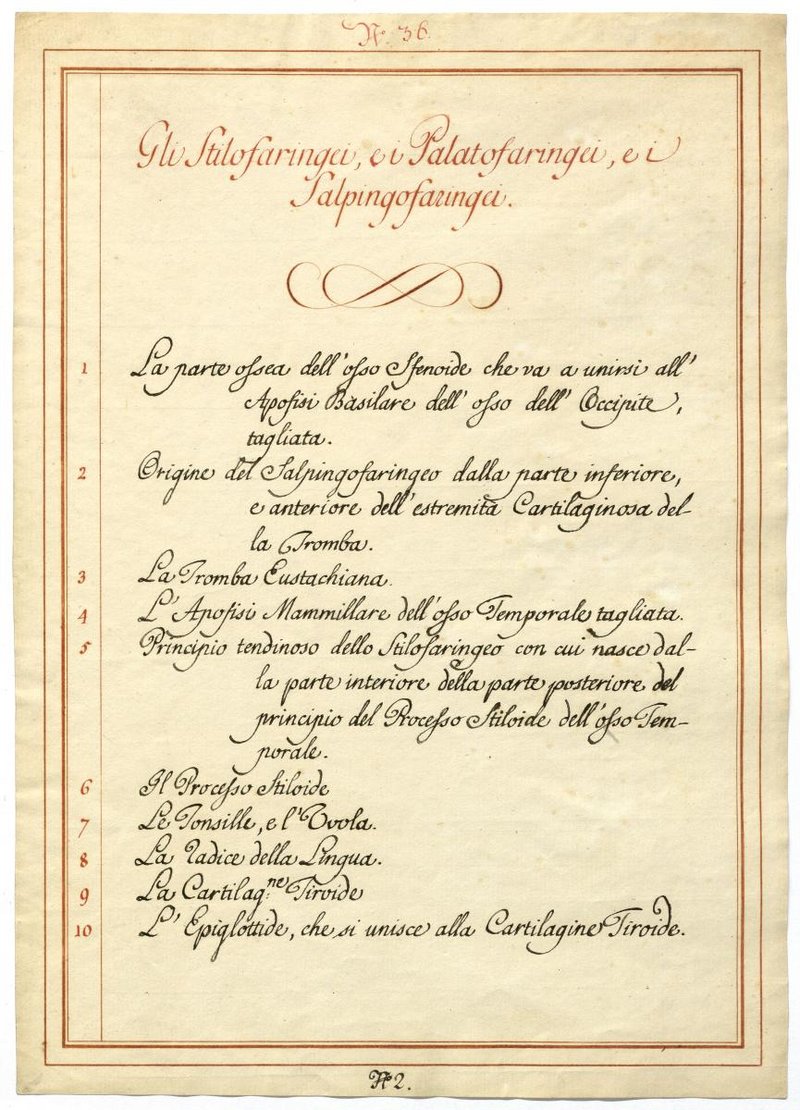 No. 36.
Gli Stilofaringei, e i Palatofaringei, e i
Salpingofaringei.
1 La parte ossea dell'osso Sfenoide che va a unirsi all'
Apofisi Basilare dell' osso dell' Occipite,
tagliata.
2 Origine del Salpingofaringeo dalla parte inferiore,
e anteriore dell'estremità Cartilaginosa del-
la Tromba.
3 La Tromba Eustachiana.
4 L'Apofisi Mammillare dell'osso Temporale tagliata.
5 Principio tendinoso dello Stilofaringeo con cui nasce dal-
la parte interiore della parte posteriore del
principio del Processo Stiloide dell'osso Tem-
porale.
6 Il Processo Stiloide
7 Le Tonsille, e l'Uvola.
8 La Radice della Lingua.
9 La Cartilag:ne Tiroide
10 L'Epiglottide, che si unisce alla Cartilagine Tiroide.
No 2.